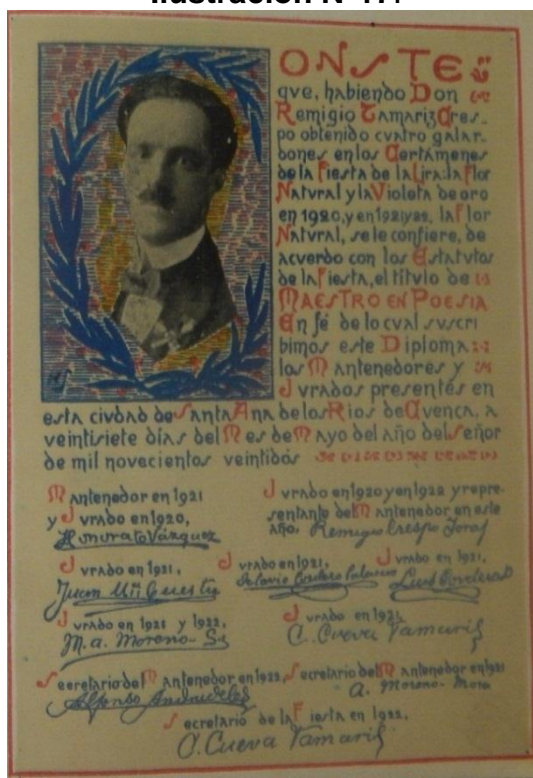 Ilustración Nº
ONSTE
qve, habiendo Don
Remigio Tamariz Cres-
po obtenido cvatro galar-
dones en los Certámenes
de la Fiesta de la Lira: la Flor
Natvral y la Violeta de oro
en 1920, y en 1921 y 22, la Flor
Natvral, se le confiere, de
acverdo con los Estatvtos
de la Fiesta, el título de
MAESTRO EN POESIA
En fé de lo cval svscri
bimos este Diploma
los Mantenedores y
Jvrados presentes en
esta civdad de Santa Ana de los Rios de Cvenca, a
veintisiete días del Mes de Mayo del año del Señor
de mil novecientos veintidós
Mantenedor en 1921
y Jvrado en 1920,
Honorato Vázquez
Jvrado en 1920 y en 1922 y repre-
sentante del Mantenedor en este
año, Remigio Crespo Toral
Jvrado en 1921,
Jvrado en 1921,
Octavio Cordero Palacios
Jvrado en 1921,
Luis Cordero
Jvrado en 1921 y 1922,
M. a. Moreno
Jvrado en 1921,
C. Cueva Tamariz
Secretario del Mantenedor en 1922,
Alfonso
Secretario del Mantenedor en 1921
A. Moreno Mora
Secretario de la Fiesta en 1922,
C. Cueva Tamariz